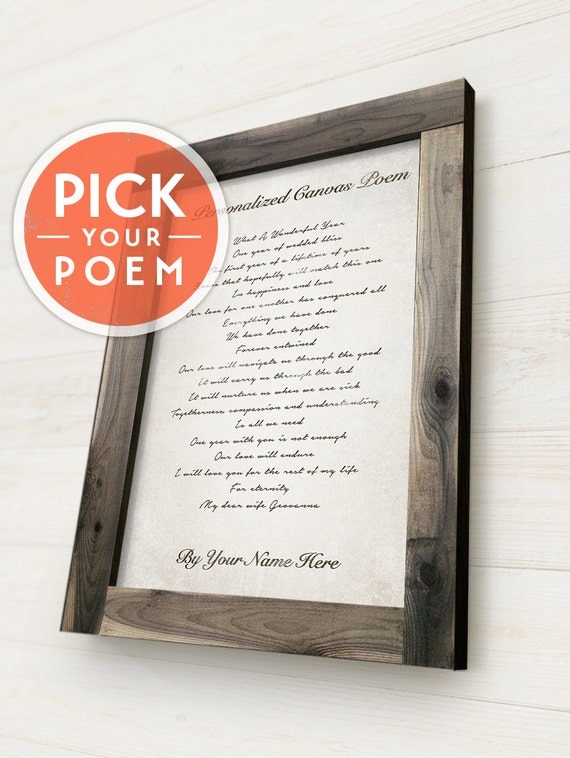 PICK
YOUR
POEM
Personalized Canvas Poem
What A Wonderful Year
One year of wedded bliss
The first year of a lifetime of years
that hopefully will match this one
In happiness and love
Our love for one another has conquered all
Everything we have done
We have done together
Forever entwined
Our love will navigate us through the good
It will carry us through the bad
It will nurture us when we are sick
Togetherness compassion and understanding
Is all we need
One year with you is not enough
Our love will endure
I will love you for the rest of my life
For eternity
My dear wife Geovanna
By Your Name Here